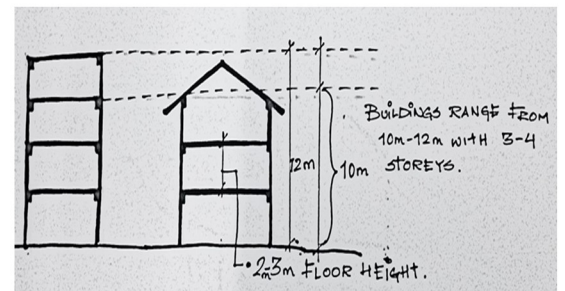 BUILDINGS RANGE FROM
10m-12m WITH 3-4
STOREYS.
12m
10m
2m-3m FLOOR HEIGHT.